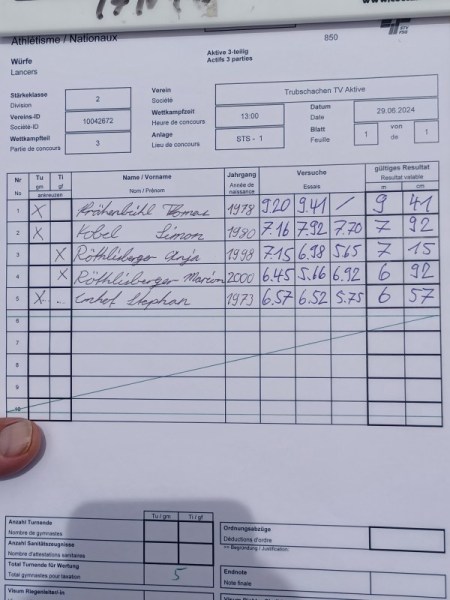 Athlétisme / Nationaux
850
Würfe
Lancers
Aktive 3-teilig
Actifs 3 parties
Stärkeklasse
Division
2
Verein
Société
Trubschachen TV Aktive
Vereins-ID
Société-ID
10042672
Wettkampfzeit
Heure de concours
13:00
Datum
Date
29.06.2024
Wettkampfteil
Partie de concours
3
Anlage
Lieu de concours
STS - 1
Blatt
Feuille
1
von
de
1
Nr
No
Tu
gm
Ti
gf
ankreuzen
Name / Vorname
Nom / Prénom
Jahrgang
Année de naissance
Versuche
Essais
gültiges Resultat
Resultat valable
m
cm
1 X Krähenbühl Thomas 1978 9.20 9.41 / 9 41
2 X Kobel Simon 1980 7.16 7.92 7.70 7 92
3 X Röthlisberger Anja 1998 7.15 6.98 5.65 7 15
4 X Röthlisberger Marion 2000 6.45 5.66 6.92 6 92
5 X Imhof Stephan 1973 6.57 6.52 5.75 6 57
6
7
8
9
10
Tu / gm
Ti / gf
Anzahl Turnende
Nombre de gymnastes
Anzahl Sanitätszeugnisse
Nombre d'attestations sanitaires
Total Turnende für Wertung
Total gymnastes pour taxation
5
Ordnungsabzüge
Déductions d'ordre
>> Begründung / Justification:
Endnote
Note finale
Visum Riegenleiter/-in